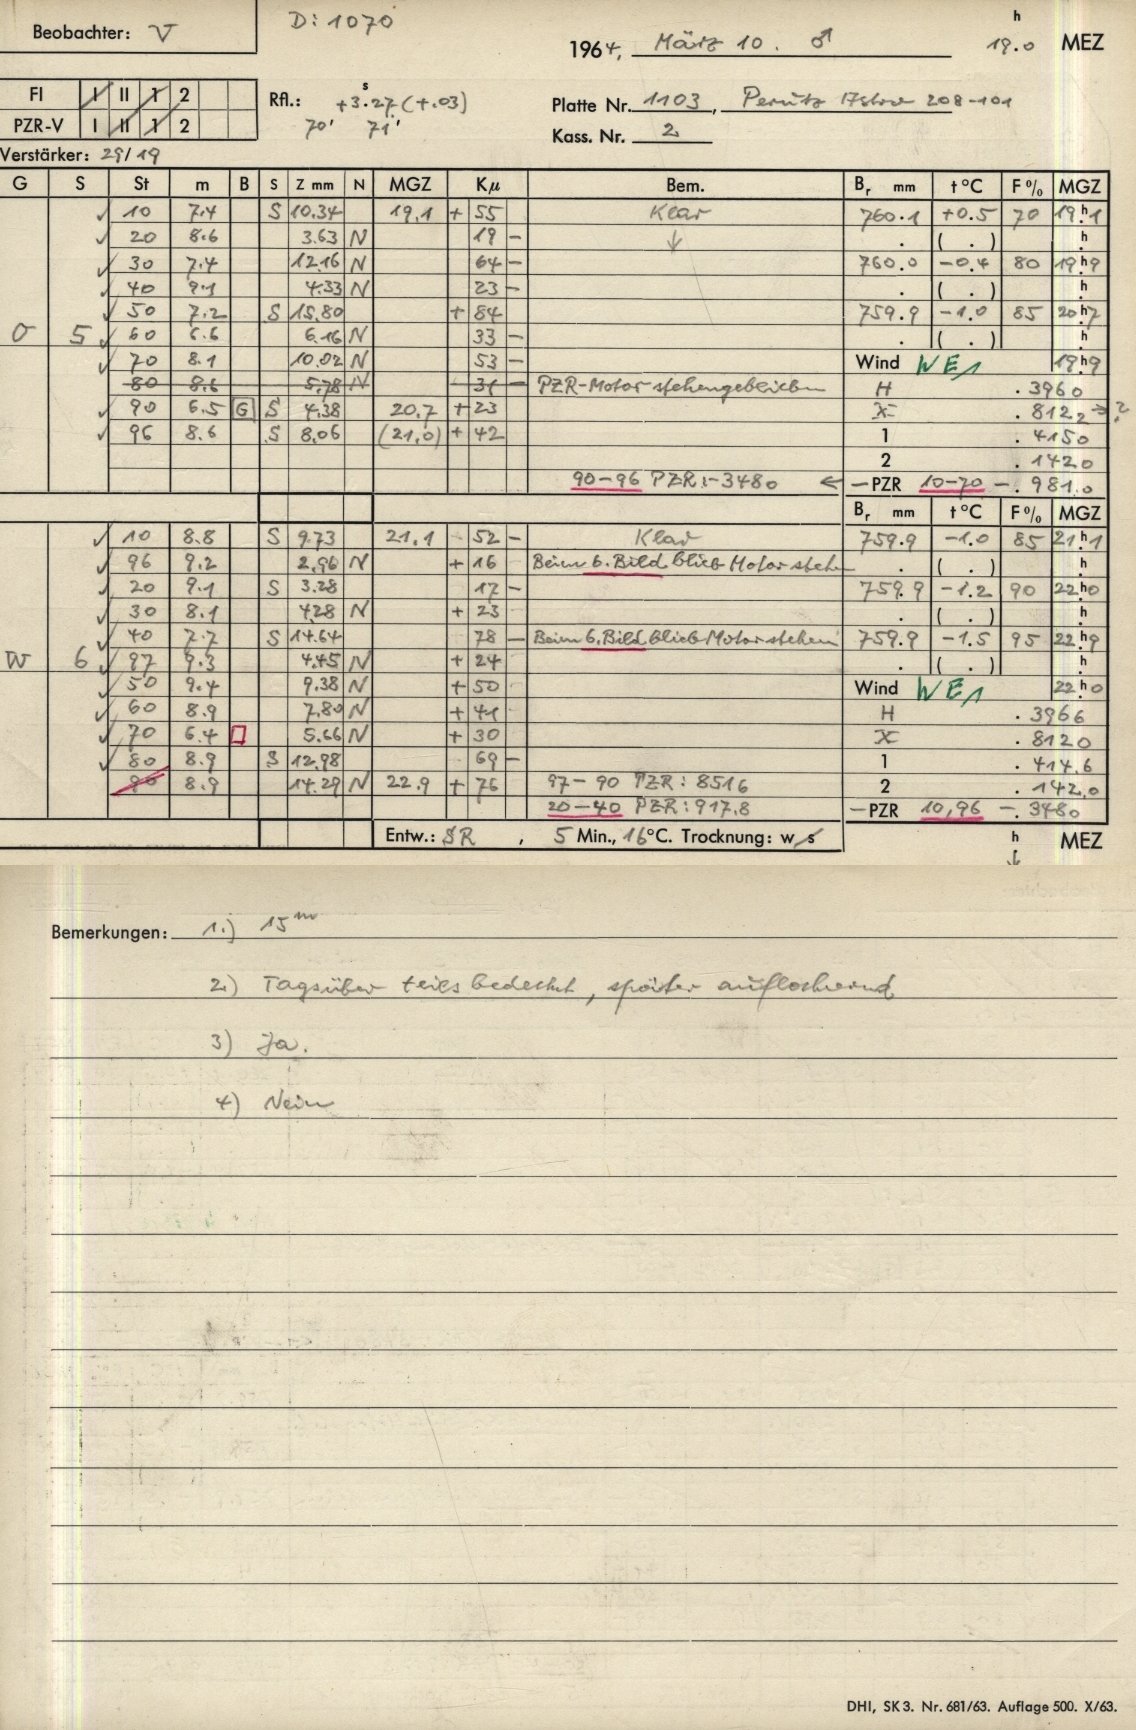 Beobachter: V
D: 1070
1964, März 10. ♂ 19.0 h MEZ
FI I II 1 2
PZR-V I II 1 2
Rfl.: +3.27 s (+.03)
70' 71'
Platte Nr. 1103, Perutz 208-101
Kass. Nr. 2
Verstärker: 29/19
G S St m B S Z mm N MGZ Kμ Bem. Br mm t °C F % MGZ
10 7.4 S 10.34 19,1 + 55 Klar 760.1 +0.5 70 19h1
20 8.6 3.63 N 19 - ↓ . ( . ) h
30 7.4 12.16 N 64 - 760.0 -0.4 80 19h9
40 9.1 4.33 N 23 - . ( . ) h
50 7.2 S 15.80 + 84 759.9 -1.0 85 20h7
O 5 60 6.6 6.16 N 33 - . ( . ) h
70 8.1 10.02 N 53 - Wind WE1 19h9
80 8.6 5.78 N 31 - PZR-Motor stehengeblieben H .3960
90 6.5 G S 4.38 20.7 + 23 X .8122 → ?
96 8.6 S 8.06 (21,0) + 42 1 .4150
2 .1420
90-96 PZR:-3480 ← -PZR 10-70 -.981.0
Br mm t °C F % MGZ
10 8.8 S 9.73 21.1 52 - Klar 759.9 -1.0 85 21h1
96 9.2 2.96 N + 16 Beim 6. Bild blieb Motor stehen . ( . ) h
20 9.1 S 3.28 17 - 759.9 -1.2 90 22h0
30 8.1 4.28 N + 23 . ( . ) h
40 7.7 S 14.64 78 - Beim 6. Bild blieb Motor stehen 759.9 -1.5 95 22h9
W 6 97 9.3 4.45 N + 24 . ( . ) h
50 9.4 9.38 N + 50 Wind WE1 22h0
60 8.9 7.80 N + 41 H .3966
70 6.4 5.66 N + 30 X .8120
80 8.9 S 12.98 69 - 1 .414.6
90 8.9 14.29 N 22.9 + 76 97-90 PZR: 8516 2 .142.0
20-40 PZR: 917.8 -PZR 10,96 -.3480
Entw.: SR, 5 Min., 16°C. Trocknung: w/s h MEZ
↓
Bemerkungen: 1.) 15m
2) Tagsüber teils bedeckt, später auflockernd
3) Ja.
4) Nein
DHI, SK 3. Nr. 681/63. Auflage 500. X/63.